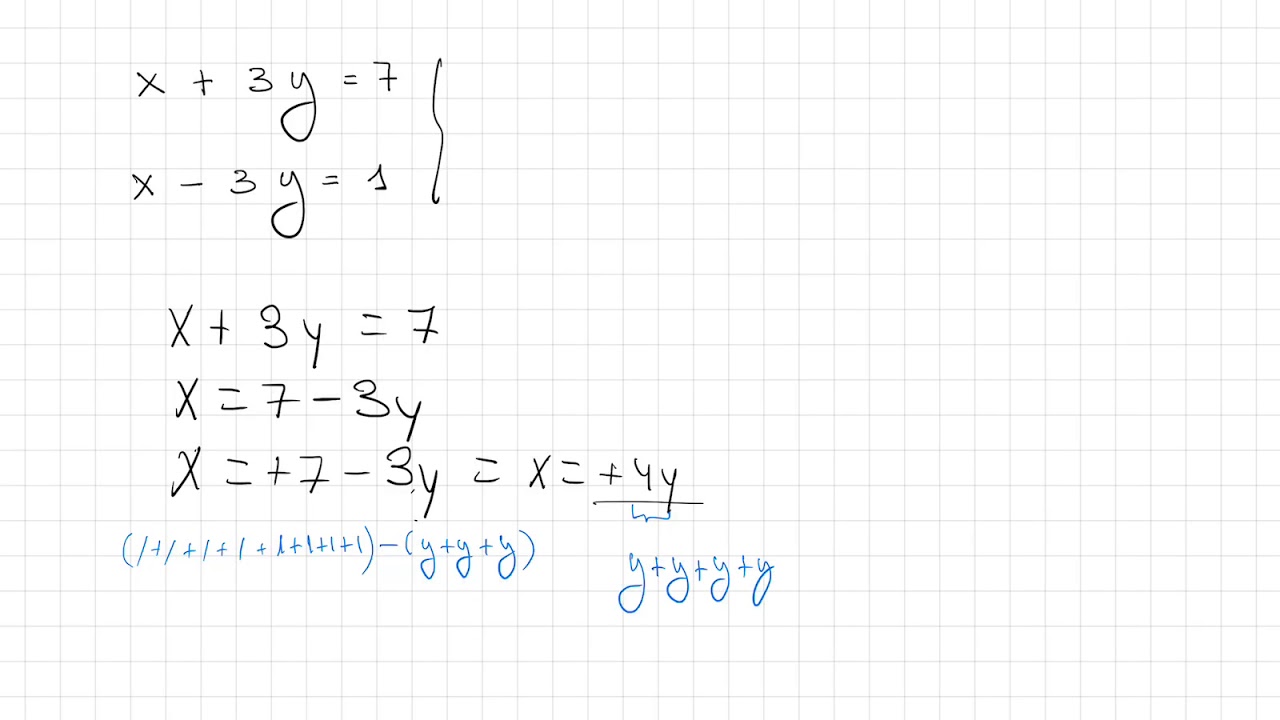 x + 3y = 7
x - 3y = 1
x + 3y = 7
x = 7 - 3y
x = +7 - 3y = x = +4y
(1+1+1+1+1+1+1+1)-(y+y+y)
y+y+y+y